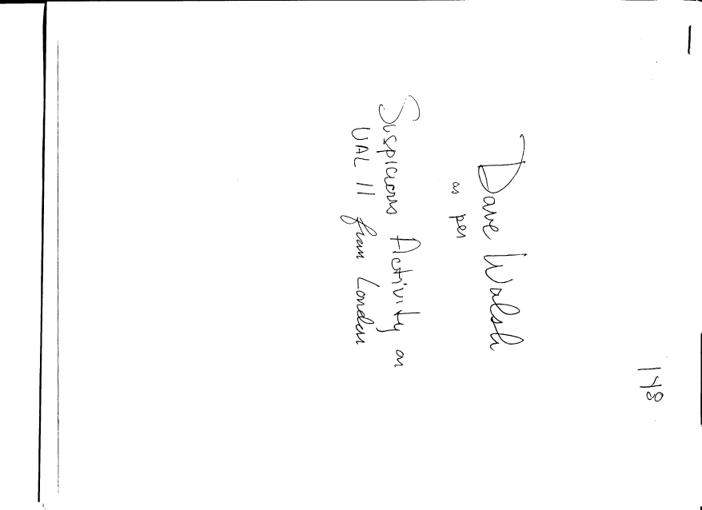 148
Dave Walsh
as per
Suspicious Activity on
UAL 11 from London